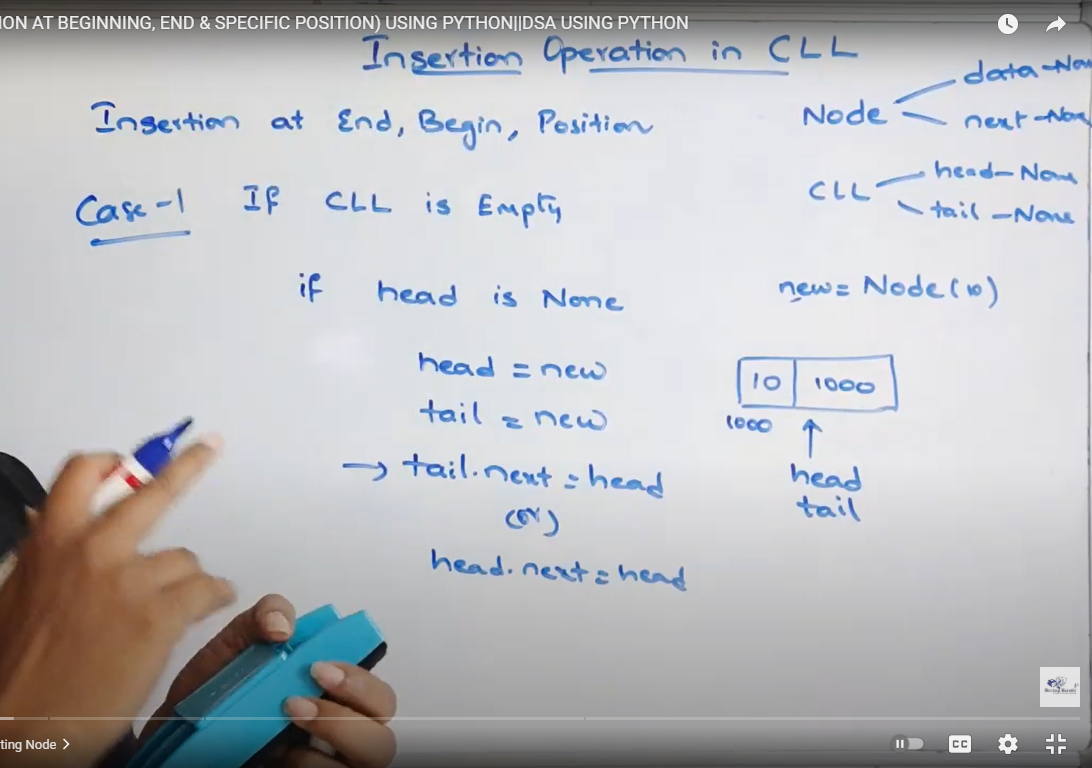 ION AT BEGINNING, END & SPECIFIC POSITION) USING PYTHON||DSA USING PYTHON
Insertion Operation in CLL
Insertion at End, Begin, Position
Node
data-Non
next-Non
CLL
head-None
tail-None
Case-1 If CLL is Empty
if head is None
new= Node(10)
head = new
tail = new
→ tail.next = head
(or)
head.next = head
10 1000
1000
↑
head
tail
ting Node >
CC